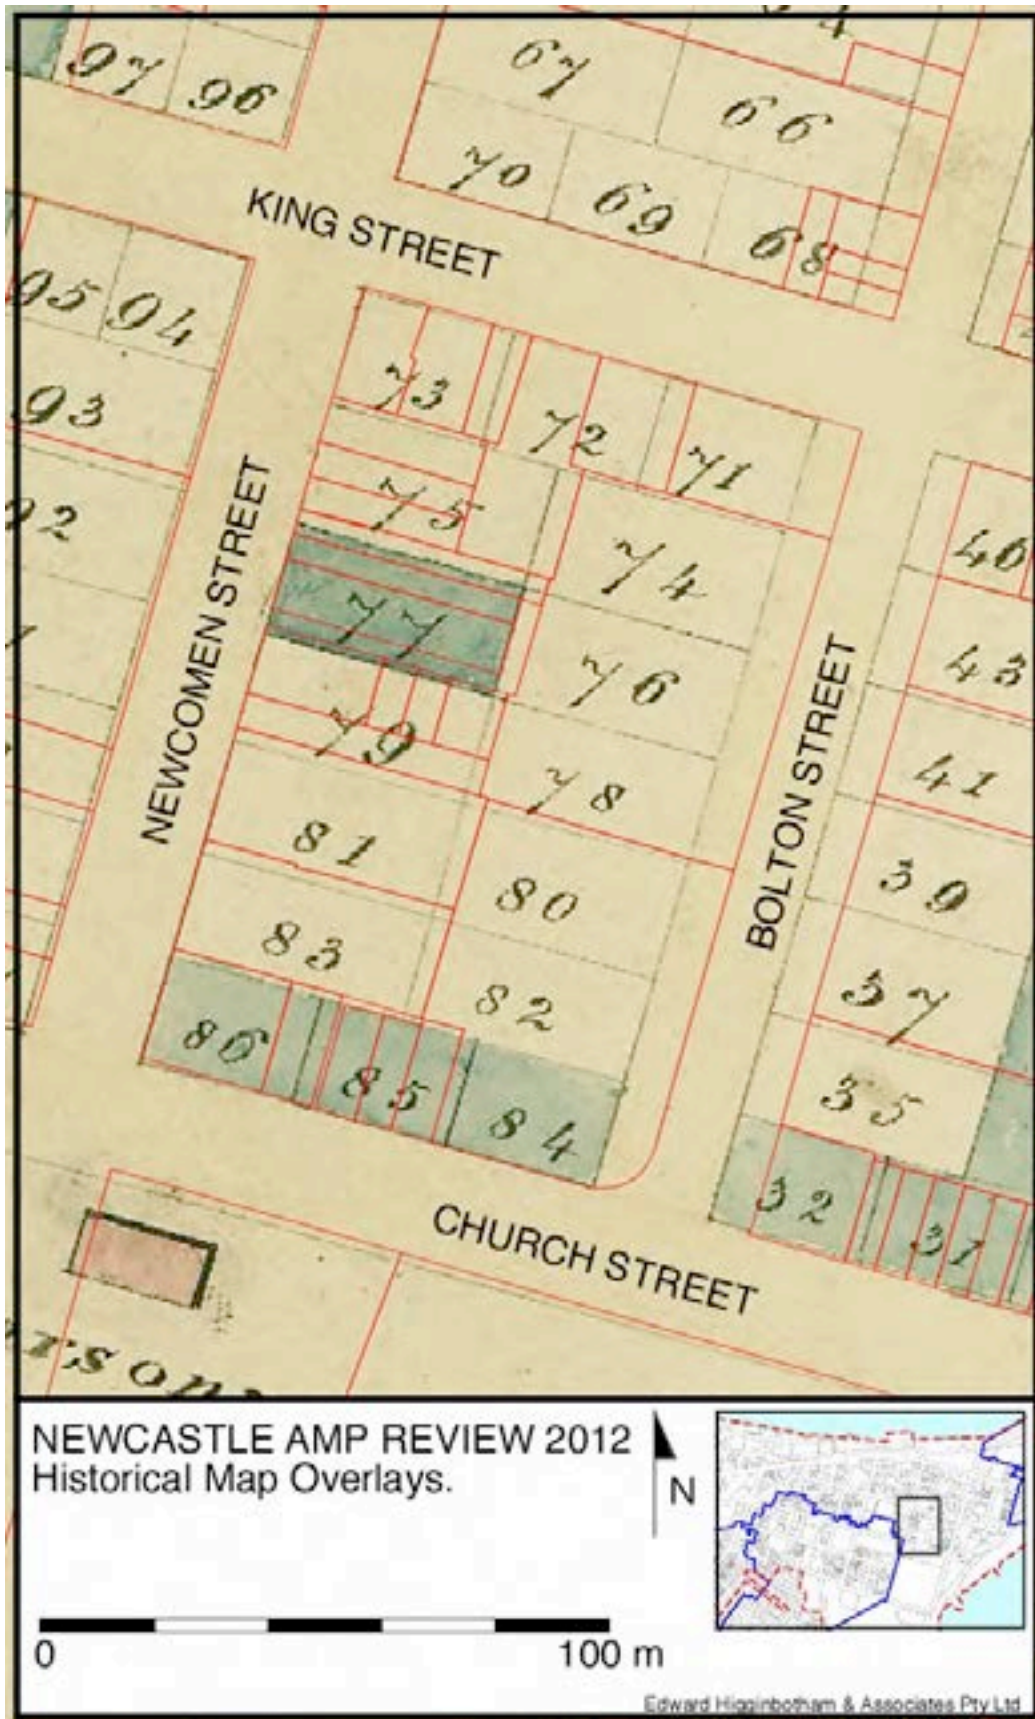 97
96
67
66
70
69
68
KING STREET
95
94
93
92
73
72
71
75
74
77
76
79
78
NEWCOMEN STREET
BOLTON STREET
40
43
41
39
37
35
81
80
83
82
86
85
84
32
31
CHURCH STREET
NEWCASTLE AMP REVIEW 2012
Historical Map Overlays.
N
0 100 m
Edward Higginbotham & Associates Pty Ltd